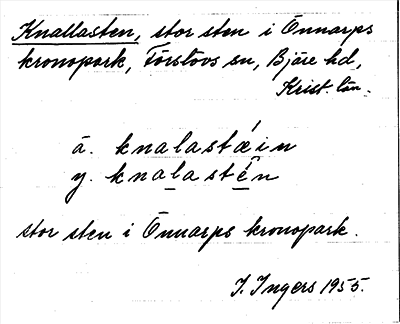 Knallasten, stor sten i Önnarps
kronopark, Förslövs sn, Bjäre hd,
Krist. län.
ä. knalastæ´in
y. knalastên
stor sten i Önnarps kronopark.
I. Ingers 1955.